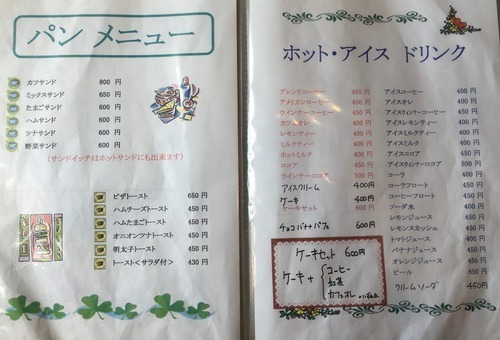 パン メニュー
カツサンド 800 円
ミックスサンド 650 円
たまごサンド 600 円
ハムサンド 600 円
ツナサンド 600 円
野菜サンド 600 円
(サンドイッチはホットサンドにも出来ます)
ピザトースト 650 円
ハムチーズトースト 450 円
ハムたまごトースト 450 円
オニオンツナトースト 450 円
明太子トースト 450 円
トースト<サラダ付> 430 円
ホット・アイス ドリンク
ブレンドコーヒー 400 円
アメリカンコーヒー 400 円
ウインナーコーヒー 450 円
カフェオレ 400 円
レモンティー 400 円
ミルクティー 400 円
ホットミルク 400 円
ココア 450 円
ウインナーココア 500 円
アイスクリーム 400円
ケーキ 400円
ケーキセット 600 円
チョコバナナパフェ 600円
ケーキセット 600円
ケーキ + コーヒー
紅茶
カフェオレ
アイスコーヒー 400 円
アイスオレ 400 円
アイスウィンナーコーヒー 450 円
アイスレモンティー 400 円
アイスミルクティー 400 円
アイスミルク 400 円
アイスココア 450 円
アイスウィンナーココア 500 円
コーラ 400 円
コーラフロート 450 円
コーヒーフロート 450 円
ソーダ水 400 円
レモンジュース 450 円
レモンスカッシュ 450 円
トマトジュース 400 円
バナナジュース 450 円
オレンジジュース 450 円
ビール 650 円
クリームソーダ 450円